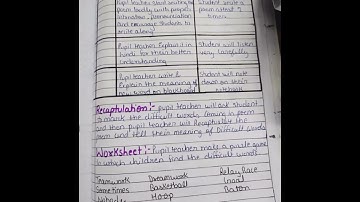 Pupil teacher start reciting the
poem loudly with proper
intonation, pronunciation
and encourage students to
recite along
Student recite
poem number of
times.
Pupil teacher Explain it in
hindi for their better
understanding
Student will listen
very carefully
Pupil teacher write &
Explain the meaning of
new word on blackboard
Student will note
down on their
notebook
Recaptulation:- pupil teacher will ask student
to mark the difficult words coming in poem
and then pupil teacher will Recaptulise the
poem and tell their meaning of Difficult words
Worksheet:- Pupil teacher make a puzzle game
in which children find the difficult words
Teamwork Dreamwork Relay Race
Sometimes Basketball
Nobody Hoop Baton